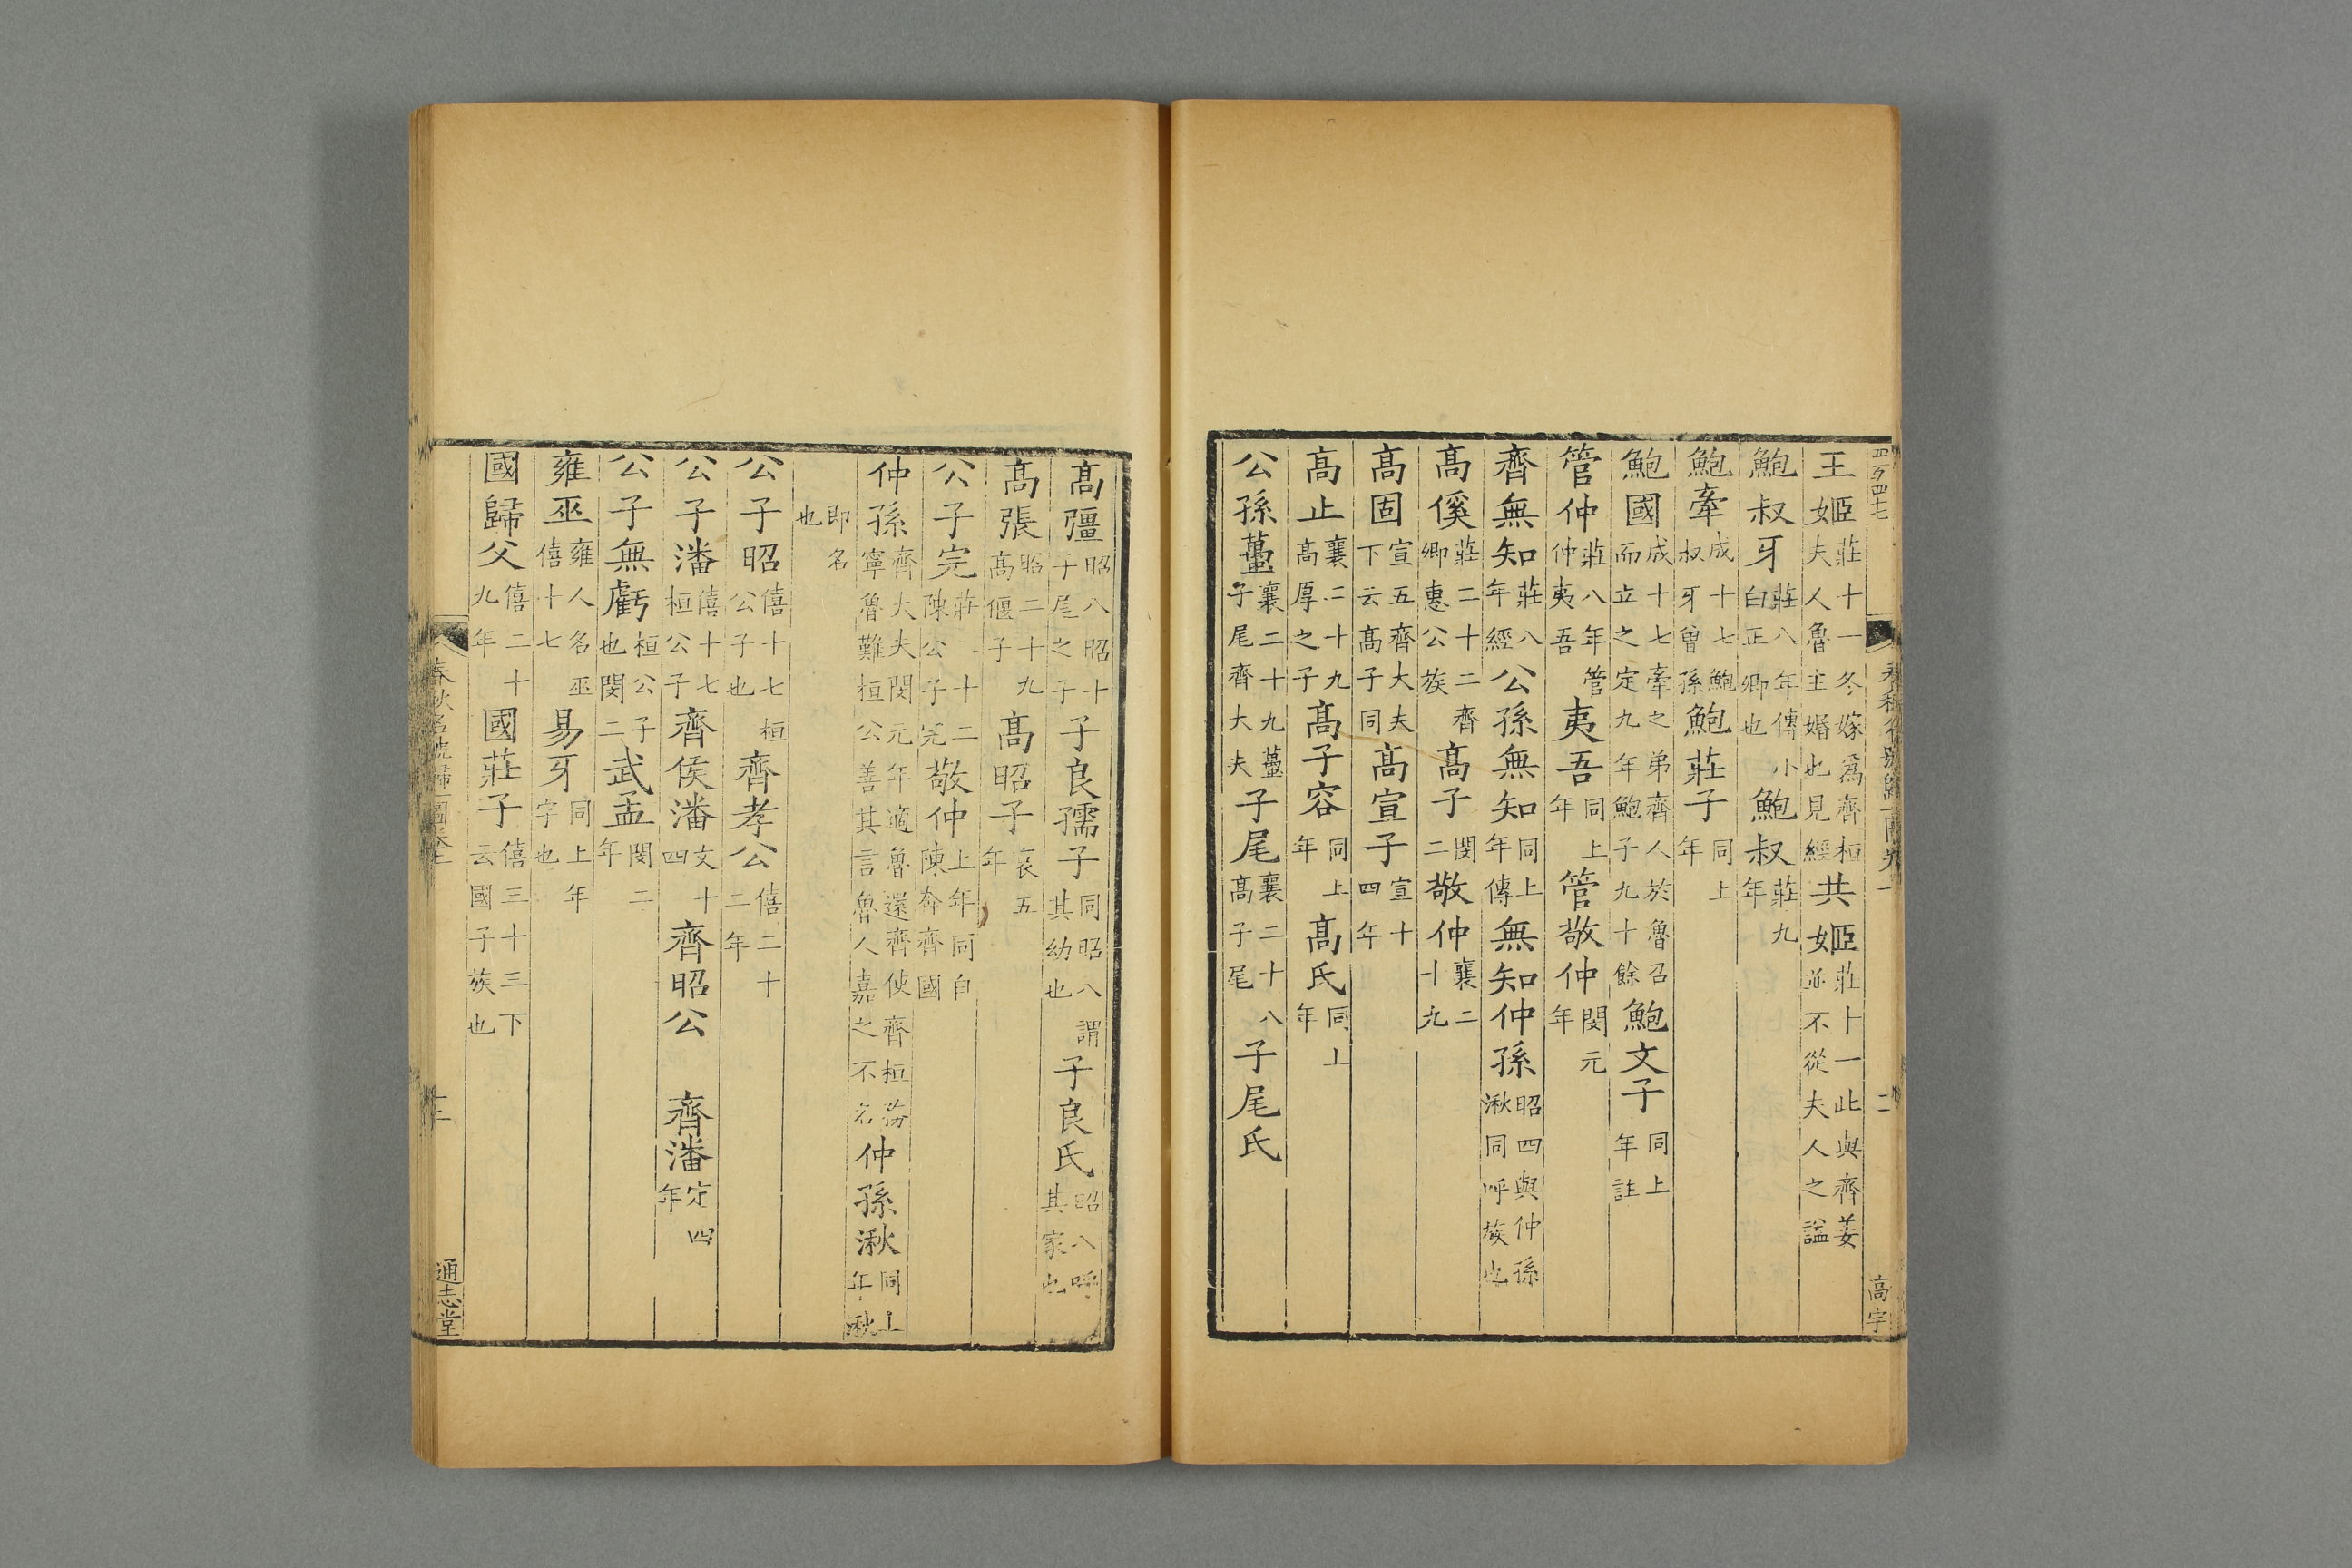 王姬莊十一冬嫁爲齊桓夫人魯主婚也見經共姬莊十一此與齊姜並不從夫人之謚
鮑叔牙莊八年傳小白正卿也鮑叔莊九年
鮑牽成十七鮑叔牙曾孫鮑莊子同上年
鮑國成十七牽之弟齊人於魯召而立之定九年鮑子九十餘鮑文子同上年註
管仲莊八年管仲夷吾夷吾同上年管敬仲閔元年
齊無知莊八年經公孫無知同上年傳無知仲孫昭四與仲孫湫同呼族也
高傒莊二十二齊卿惠公族高子閔二敬仲襄二十九
高固宣五齊大夫下云高子同高宣子宣十四年
高止襄二十九高厚之子高子容同上年高氏同上年
公孫蠆襄二十九蠆子尾齊大夫子尾襄二十八高子尾子尾氏
高彊昭八昭十子尾之子子良孺子同昭八謂其幼也子良氏昭八呼其家也
高張昭二十九高偃子高昭子哀五年
公子完莊二十二陳公子完敬仲上年同自陳奔齊國
仲孫齊大夫閔元年適魯還齊使齊桓務寧魯難桓公善其言魯人嘉之不名仲孫湫同上年湫
即名也
公子昭僖十七桓公子也齊孝公僖二十二年
公子潘僖十七桓公子齊侯潘文十四齊昭公 齊潘定四年
公子無虧桓公子也閔二武孟閔二年
雍巫雍人名巫僖十七易牙同上年字也
國歸父僖二十九年國莊子僖三十三下云國子族也
春秋名號歸一圖卷上
通志堂
四百四七
高宇